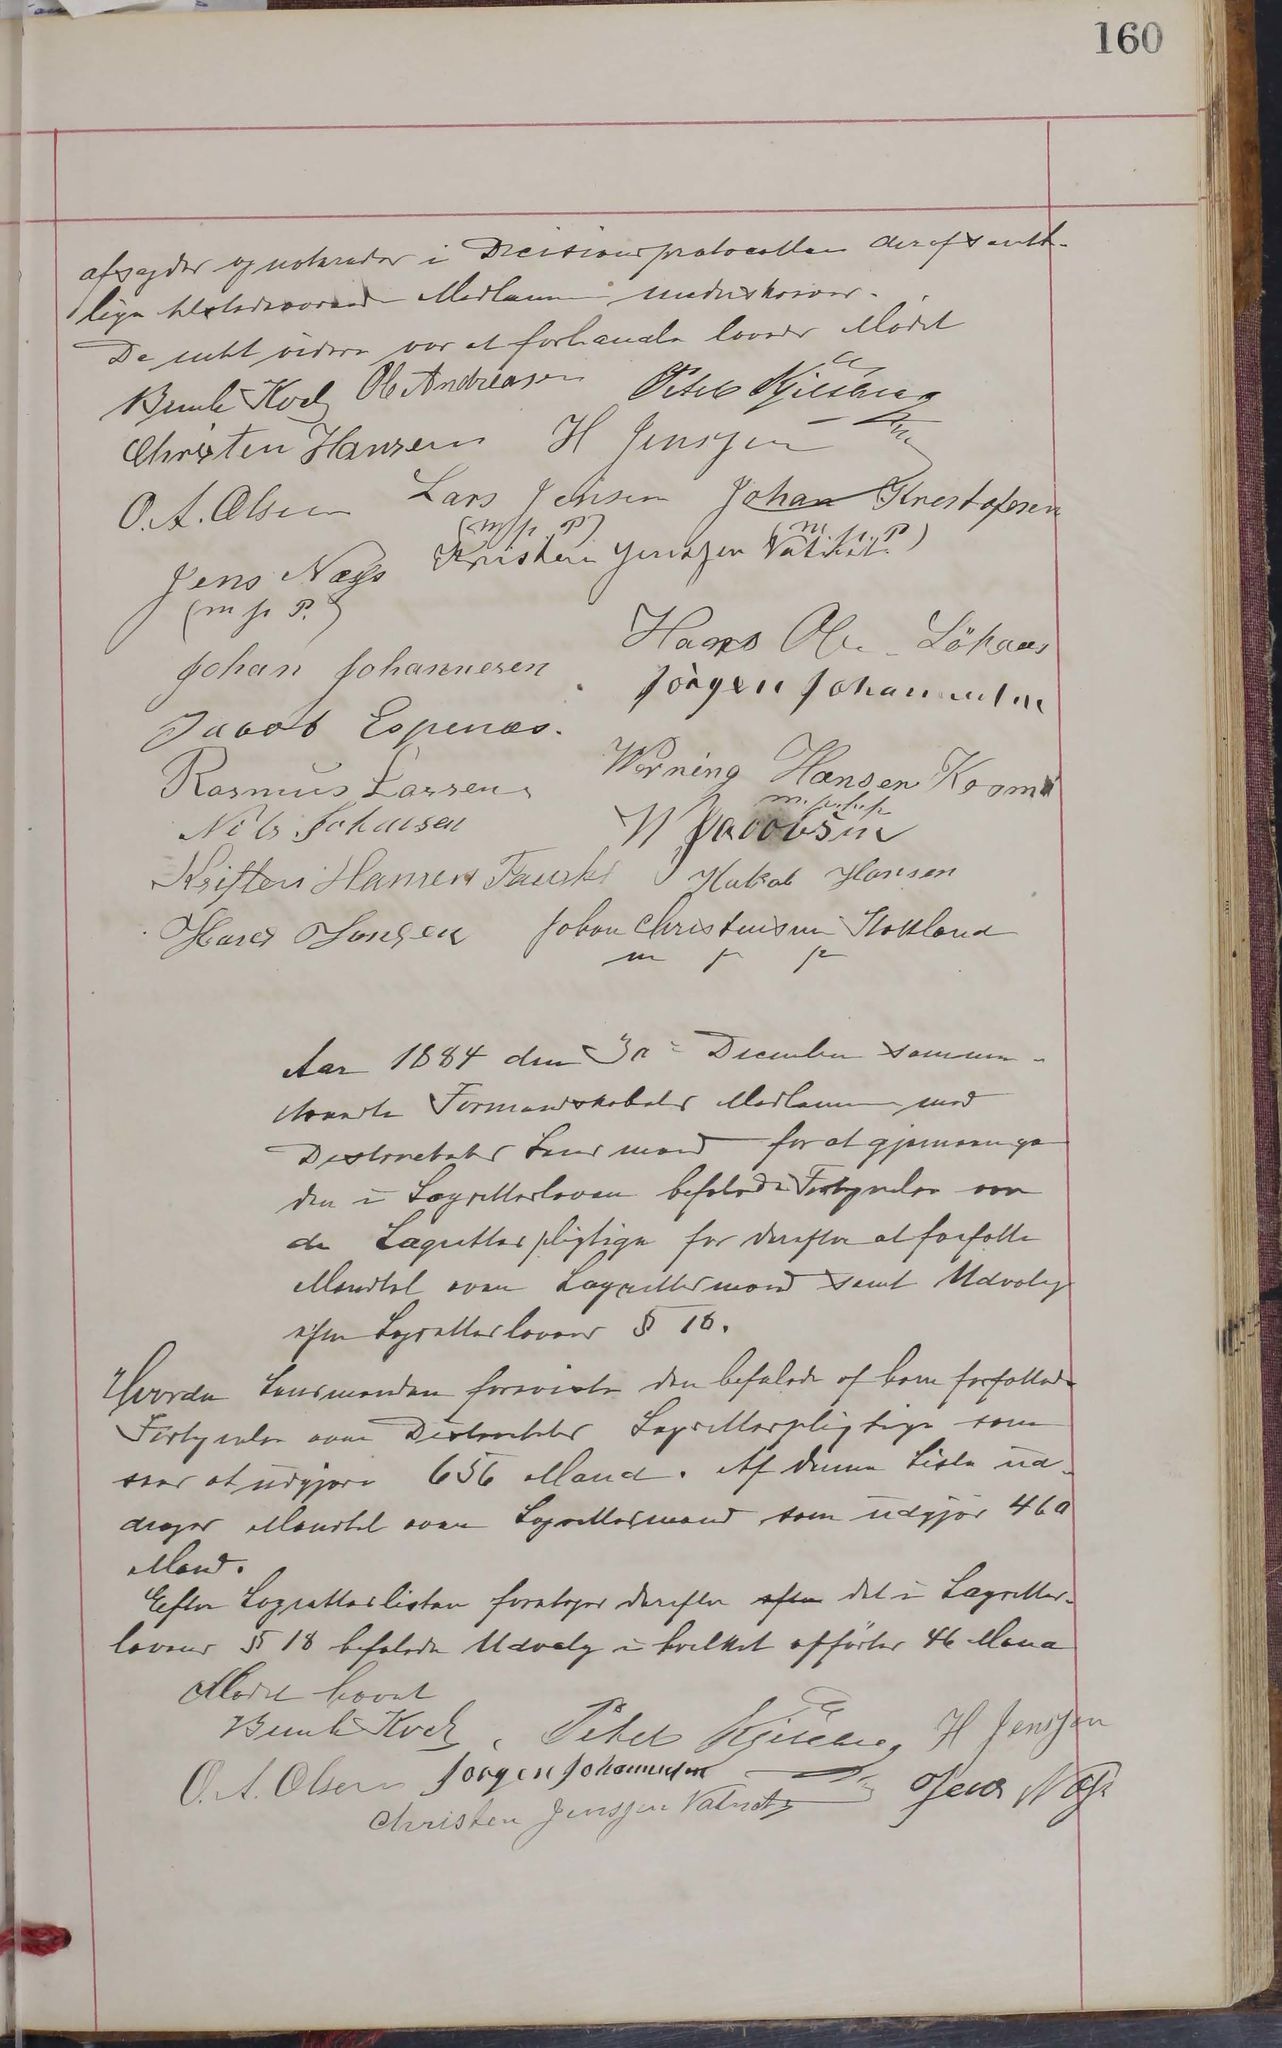 160
afsagdes og noteredes i Decisionsprotocollen der af samt-
lige tilstedeværende Medlemmer underskrives.
Da intet videre var at forhandle hævedes Mødet
Bernh Koch Ole Andreasen Peter
Christen Hansen H Jenssen
O. A. Olsen Lars Jensen Johan Kristofersen
(m p. P) (m. p. P)
Jens Næss Kristen Jenssen Vatnet
(m p P.)
Johan Johannesen Hans Ole Løkaas
Jacob Espenæs. Jørgen Johannesen
Rasmus Larsen Werning Hansen Kosmo
m. p. h. p
Nils Johansen Jacobsen
Kristen Hansen Fauske Hakob Hansen
Hans Jensen Johan Christensen Stokland
m p p
Aar 1884 den 30 December sammen-
traadte Formandskabets Medlemmer med
Destriktets Lensmand for at gjennemgaa
den i Lagrettesloven befalede Fortegnelse over
de Lagrettespligtige for derefter at forfatte
Mandtal over Lagrettesmænd samt Udvalg
efter Lagretteslovens § 18.
Hvorda Lensmanden foreviste den befalede af ham forfattede
Fortegnelse over Destriktets Lagrettespligtige som
saaes at udgjøre 656 Mand. Af denne Liste ud-
drages Mandtal over Lagrettesmænd som udgjør 460
Mand.
Efter Lagretteslisten foretoges derefter efter det i Lagrettes-
lovens § 18 befalede Udvalg i hvilket opførtes 46 Mand
Mødet hævet
Bernh Koch. Peter H Jenssen
O. A. Olsen Jørgen Johannesen Jens Næss
Christen Jenssen Vatnet